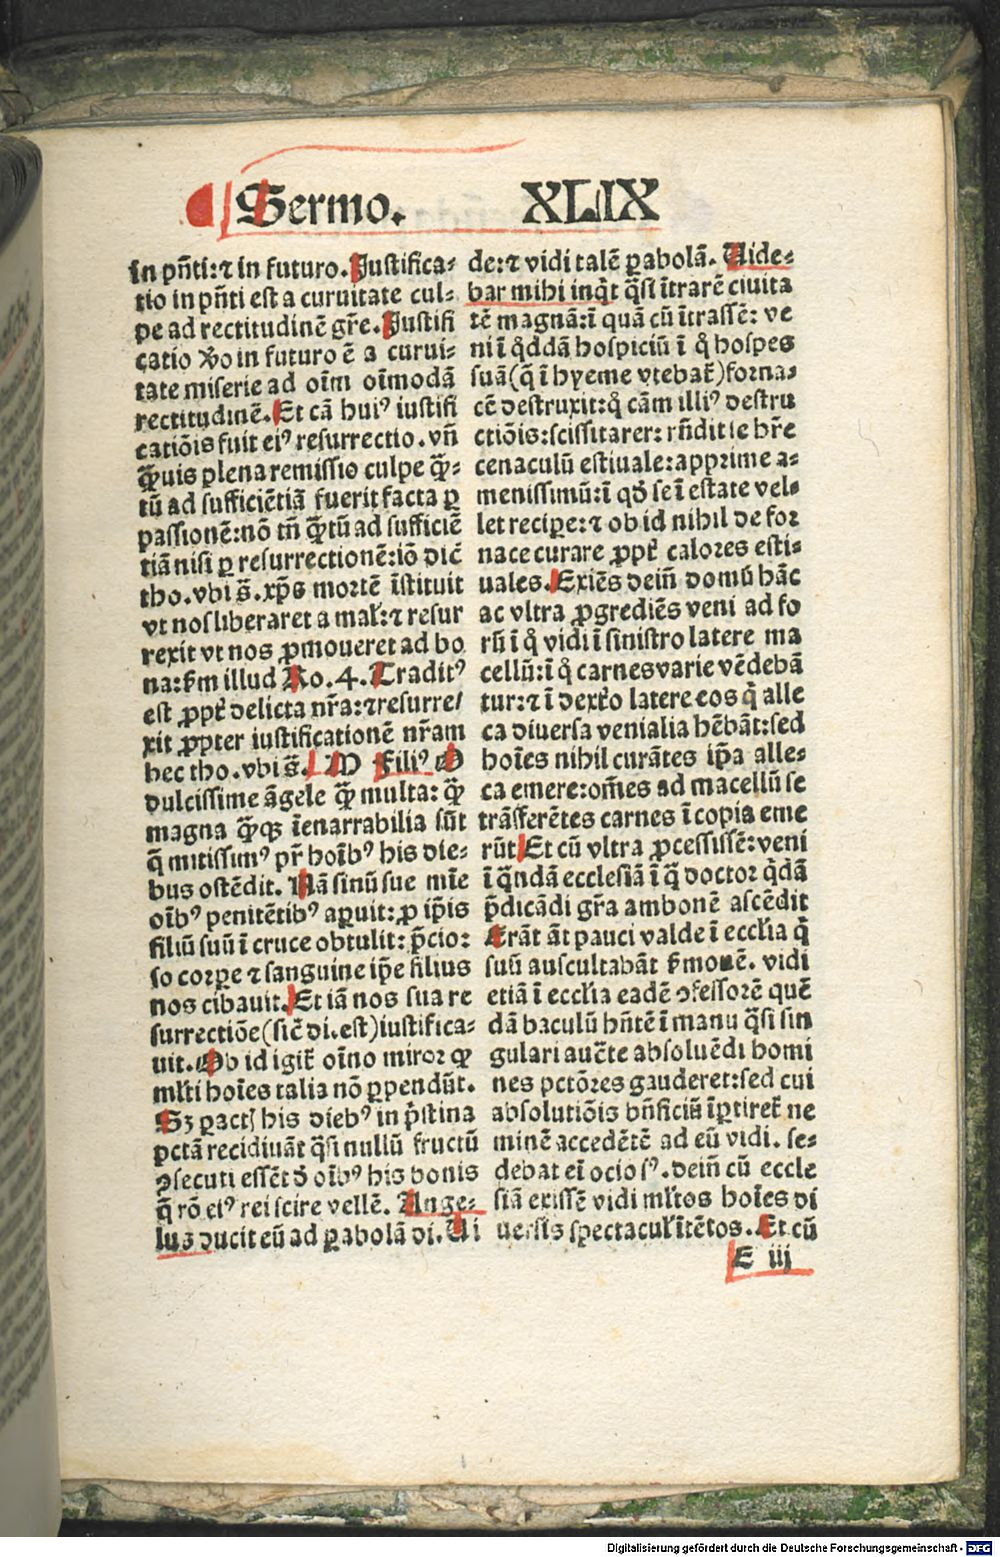 Sermo. XLIX
in pñti: ⁊ in futuro. Justifica⸗
tio in pñti est a curuitate cul⸗
pe ad rectitudinẽ gr̃e. Justifi
catio ꝟo in futuro ẽ a curui⸗
tate miserie ad oĩm oĩmodã
rectitudinẽ. Et cã huiꝰ iustifi
catiõis fuit eiꝰ resurrectio. vñ
q̃uis plena remissio culpe q̃⸗
tũ ad sufficiẽtiã fuerit facta ꝑ
passionẽ: nõ tñ q̃tũ ad sufficiẽ
tiã nisi ꝑ resurrectionẽ: iõ dic̃
tho. vbi s̃. xp̃s mortẽ ĩstituit
vt nos liberaret a mal̃: ⁊ resur
rexit vt nos ꝓmoueret ad bo
na: ẜm illud Ro. 4. Traditꝰ
est ꝓpt̃ delicta nr̃a: ⁊ resurre/
xit ꝓpter iustificationẽ nr̃am
hec tho. vbi s̃. Filiꝰ O
dulcissime ãgele q̃ multa: q̃
magna q̃qꝫ ĩenarrabilia sũt
q̃ mitissimꝰ pr̃ hoĩbꝰ his die⸗
bus ostẽdit. Nã sinũ sue mĩe
oĩbꝰ penitẽtibꝰ aꝑuit: ꝓ ip̃is
filiũ suũ ĩ cruce obtulit: p̃cio⸗
so corpe ⁊ sanguine ip̃e filius
nos cibauit. Et iã nos sua re
surrectiõe (sic̃ di. est) iustifica⸗
uit. Ob id igit̃ oĩno miror ꝙ
ml̃ti hoĩes talia nõ ꝑpendũt.
Sꝫ ꝑactꝭ his diebꝰ in p̃stina
pctã recidiuãt q̃si nullũ fructũ
ꝯsecuti essẽt d̃ oĩbꝰ his bonis
q̃ rõ eiꝰ rei scire vellẽ. Ange⸗
lus ducit eũ ad ꝑabolã di. Ui
de: ⁊ vidi talẽ ꝑabolã. Uide⸗
bar mihi inq̃t q̃si ĩtrarẽ ciuita
tẽ magnã: ĩ quã cũ ĩtrassẽ: ve
ni ĩ q̊ddã hospiciũ ĩ q̊ hospes
suã (q̃ ĩ hyeme vtebat̃) forna⸗
cẽ destruxit: q̊ cãm illiꝰ destru
ctiõis: scissitarer: rñdit se hr̃e
cenaculũ estiuale: apprime a⸗
menissimũ: ĩ qd̃ se ĩ estate vel⸗
let recipe: ⁊ ob id nihil de for
nace curare ꝓpt̃ calores esti⸗
uales. Exiẽs deiñ domũ hãc
ac vltra ꝓgrediẽs veni ad fo
rũ ĩ q̊ vidi ĩ sinistro latere ma
cellũ: ĩ q̊ carnes varie vẽdebã
tur: ⁊ ĩ dext̃o latere eos q̊ alle
ca diuersa venialia hẽbãt: sed
hoĩes nihil curãtes ip̃a alle⸗
ca emere: om̃es ad macellũ se
trãsferẽtes carnes ĩ copia eme
rũt Et cũ vltra ꝓcessissẽ: veni
ĩ q̃ndã ecclesiã ĩ q̃ doctor q̊dã
p̃dicãdi gr̃a ambonẽ ascẽdit
Erãt ãt pauci valde ĩ eccl̃ia q̊
suũ auscultabãt ẜmonẽ. vidi
etiã ĩ eccl̃ia eadẽ ꝯfessorẽ quẽ
dã baculũ hñtẽ ĩ manu q̃si sin
gulari auc̃te absoluẽdi homi
nes pctõres gauderet: sed cui
absolutiõis bñficiũ ĩꝑtiret̃ ne
minẽ accedẽtẽ ad eũ vidi. se⸗
debat eĩ ociosꝰ. deiñ cũ eccle
siã exissẽ vidi ml̃tos hoĩes di
uersis spectacul̃ ĩtẽtos. Et cũ
E iij
Digitalisierung gefördert durch die Deutsche Forschungsgemeinschaft - DFG